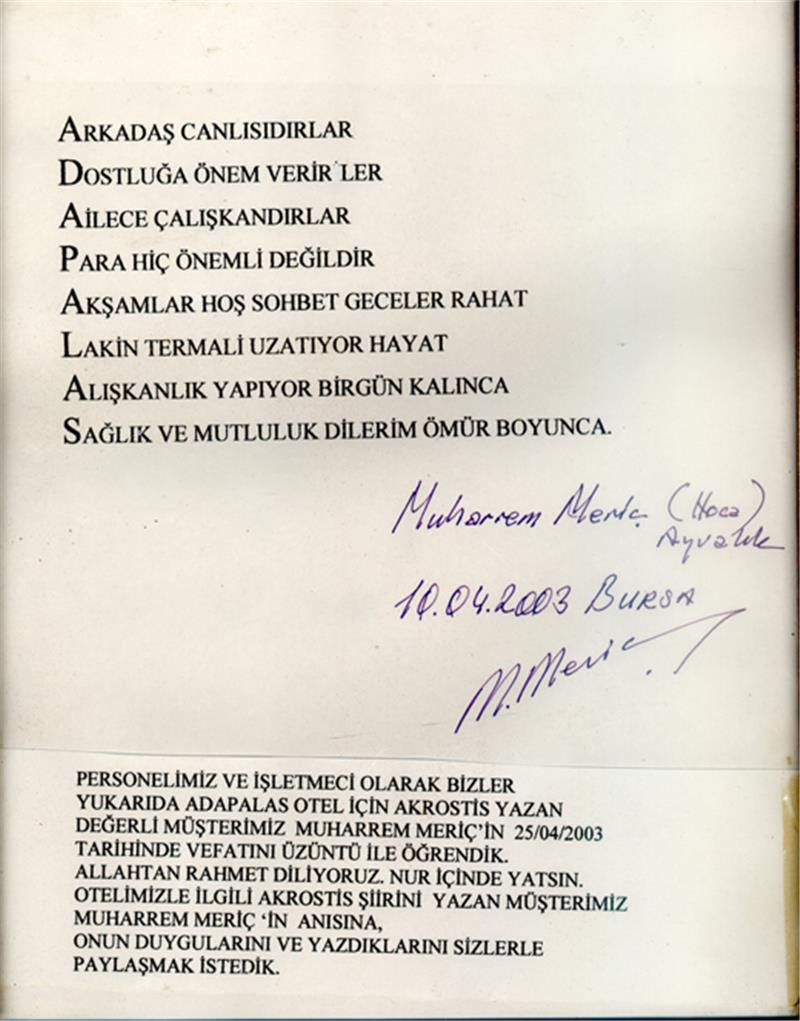 ARKADAŞ CANLISIDIRLAR
DOSTLUĞA ÖNEM VERİR'LER
AİLECE ÇALIŞKANDIRLAR
PARA HİÇ ÖNEMLİ DEĞİLDİR
AKŞAMLAR HOŞ SOHBET GECELER RAHAT
LAKİN TERMALİ UZATIYOR HAYAT
ALIŞKANLIK YAPIYOR BİRGÜN KALINCA
SAĞLIK VE MUTLULUK DİLERİM ÖMÜR BOYUNCA.
Muharrem Meriç (Hoca)
Ayvalık
10.04.2003 BURSA
M. Meriç
PERSONELİMİZ VE İŞLETMECİ OLARAK BİZLER
YUKARIDA ADAPALAS OTEL İÇİN AKROSTİS YAZAN
DEĞERLİ MÜŞTERİMİZ MUHARREM MERİÇ'İN 25/04/2003
TARİHİNDE VEFATINI ÜZÜNTÜ İLE ÖĞRENDİK.
ALLAHTAN RAHMET DİLİYORUZ. NUR İÇİNDE YATSIN.
OTELİMİZLE İLGİLİ AKROSTİS ŞİİRİNİ YAZAN MÜŞTERİMİZ
MUHARREM MERİÇ 'İN ANISINA,
ONUN DUYGULARINI VE YAZDIKLARINI SİZLERLE
PAYLAŞMAK İSTEDİK.